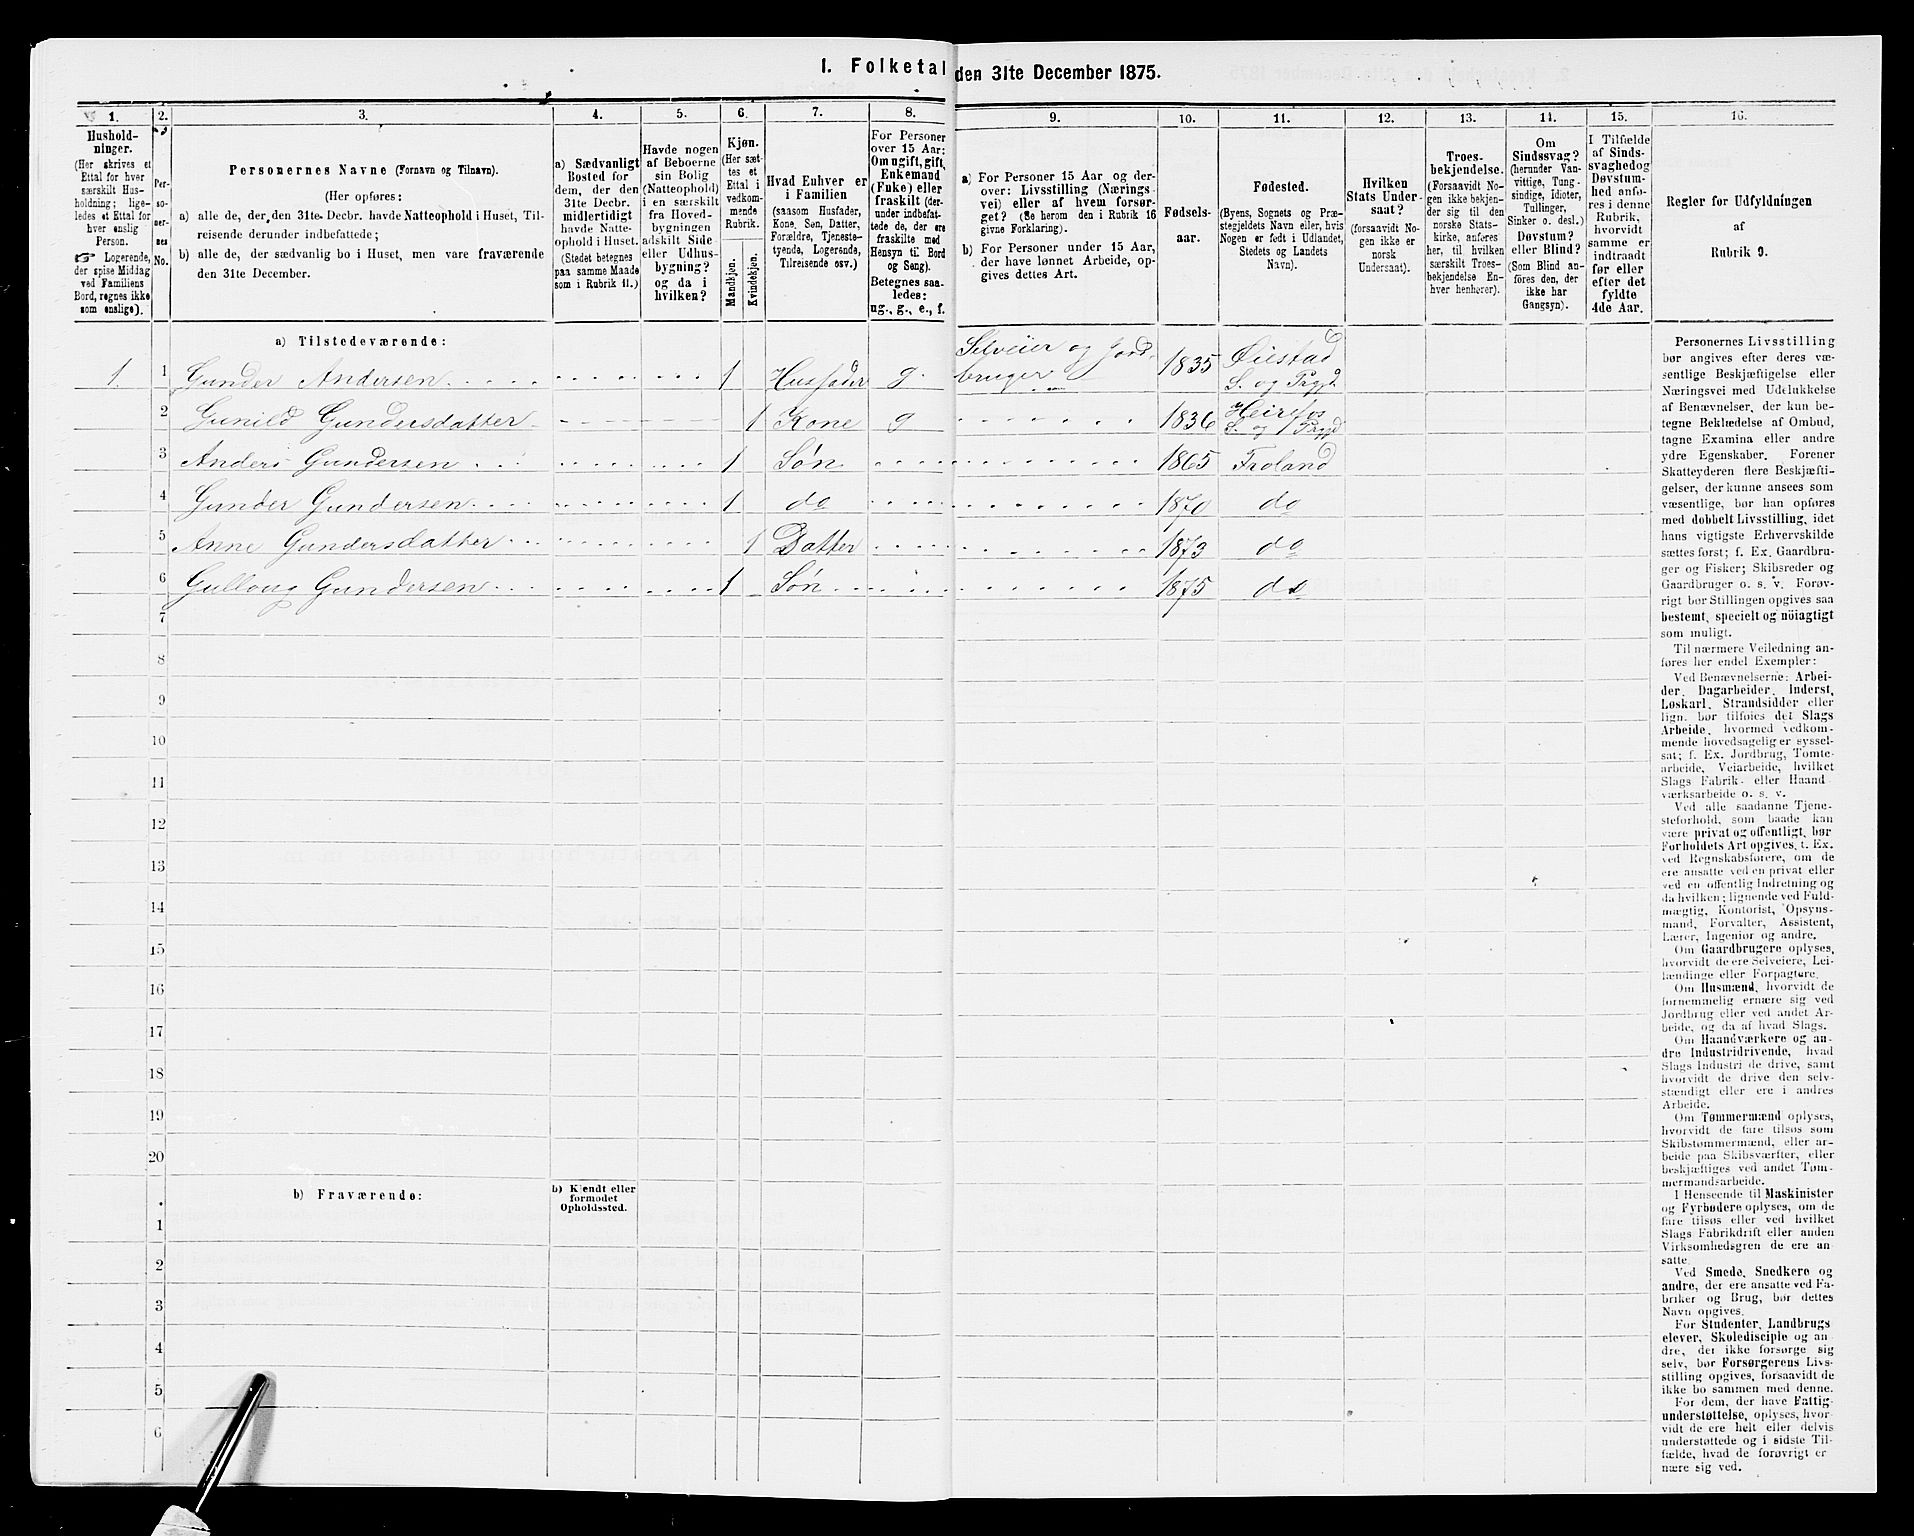 1. Folketal den 31te December 1875.
1.
2.
3.
4.
5.
6.
7.
8.
9.
10.
11.
12.
13.
14.
15.
16.
Hushold-
ninger.
(Her skrives et
Ettal for hver
særskilt Hus-
holdning; lige-
ledes et Ettal for
hver enslig
Person.
☞ Logerende,
der spise Middag
ved Familiens
Bord, regnes ikke
som enslige).
Per-
so-
ner-
nes
No.
Personernes Navne (Fornavn og Tilnavn).
(Her opføres:
a) alle de, der den 31te Decbr. havde Natteophold i Huset, Til-
reisende derunder indbefattede;
b) alle de, der sædvanlig bo i Huset, men vare fraværende
den 31te December.
a) Sædvanligt
Bosted for
dem, der den
31te Decbr.
midlertidigt
havde Natte-
ophold i Huset.
(Stedet betegnes
paa samme Maade
som i Rubrik 11.)
Havde nogen
af Beboerne
sin Bolig
(Natteophold)
i en særskilt
fra Hoved-
bygningen
adskilt Side-
eller Udhus-
bygning?
og da i
hvilken?
Kjøn.
(Her sæt-
tes et
Ettal i
vedkom-
mende
Rubrik.
Mandkjøn.
Kvindekjøn.
Hvad Enhver er
i Familien
(saasom Husfader,
Kone, Søn, Datter,
Forældre, Tjeneste-
tyende, Logerende,
Tilreisende osv.)
For Personer
over 15 Aar:
Om ugift, gift,
Enkemand
(Enke) eller
fraskilt (der-
under indbefat-
tede de, der ere
fraskilte med
Hensyn til Bord
og Seng).
Betegnes saa-
ledes:
ug., g., e., f.
a) For Personer 15 Aar og der-
over: Livsstilling (Nærings-
vei) eller af hvem forsør-
get? (Se herom den i Rubrik 16
givne Forklaring).
b) For Personer under 15 Aar,
der have lønnet Arbeide, op-
gives dettes Art.
Fødsels-
aar.
Fødested.
(Byens, Sognets og Præ-
stegjeldets Navn eller, hvis
Nogen er født i Udlandet,
Stedets og Landets
Navn).
Hvilken
Stats Under-
saat?
(forsaavidt No-
gen ikke er
norsk
Undersaat).
Troes-
bekjendelse.
(Forsaavidt No-
gen ikke bekjen-
der sig til den
norske Stats-
kirke, anføres
her, til hvilken
særskilt Troes-
bekjendelse En-
hver henhører).
Om
Sindssvag?
(herunder Van-
vittige, Tung-
sindige, Idioter,
Tullinger,
Sinker o. desl.)
Døvstum?
eller Blind?
(Som Blind an-
føres den, der
ikke har
Gangsyn).
I Tilfælde
af Sinds-
svaghed og
Døvstum-
hed anfø-
res i denne
Rubrik,
hvorvidt
samme er
indtraadt
før eller
efter det
fyldte
4de Aar.
Regler for Udfyldningen
af
Rubrik 9.
a) Tilstedeværende:
1. 1 Gunder Andersen 1 Husfader g. Selveier og Jord-
bruger 1835 Øiestad
S. og Prgjd.
2 Gunild Gundersdatter 1 Kone g 1836 Heirefos
S. og Prgjd
3 Anders Gundersen 1 Søn 1865 Froland
4 Gunder Gundersen 1 do 1870 do
5 Anne Gundersdatter 1 Datter 1873 do
6 Gulloug Gundersen 1 Søn 1875 do
7
8
9
10
11
12
13
14
15
16
17
18
19
20
b) Fraværende:
b) Kjendt eller
formodet
Opholdssted.
1
2
3
4
5
6
Personernes Livsstilling
bør angives efter deres væ-
sentlige Beskjæftigelse eller
Næringsvei med Udelukkelse
af Benævnelser, der kun be-
tegne Beklædelse af Ombud,
tagne Examina eller andre
ydre Egenskaber. Forener
Skatteyderen flere Beskjæfti-
gelser, der kunne ansees som
væsentlige, bør han opføres
med dobbelt Livsstilling, idet
hans vigtigste Erhvervskilde
sættes først; f. Ex. Gaardbru-
ger og Fisker; Skibsreder og
Gaardbruger o. s. v. Forøv-
rigt bør Stillingen opgives saa
bestemt, specielt og nöiagtigt
som muligt.
Til nærmere Veiledning an-
føres her endel Exempler:
Ved Benævnelserne: Arbei-
der, Dagarbeider, Inderst,
Løskarl, Strandsidder eller
lign. bør tilføies det Slags
Arbeide, hvormed vedkom-
mende hovedsagelig er syssel-
sat; f. Ex. Jordbrug, Tomte-
arbeide, Veiarbeide, hvilket
Slags Fabrik- eller Haand-
værksarbeide o. s. v.
Ved alle saadanne Tjene-
steforhold, som baade kan
være privat og offentligt, bør
Forholdets Art opgives, t. Ex.
ved Regnskabsførere, om de
ere ansatte ved en privat eller
ved en offentlig Indretning og
da hvilken; lignende ved Fuld-
mægtig, Kontorist, Opsyns-
mand, Forvalter, Assistent,
Lærer, Ingeniør og andre.
Om Gaardbrugere oplyses,
hvorvidt de ere Selveiere, Lei-
lændinge eller Forpagtere.
Om Husmænd, hvorvidt de
fornemmelig ernære sig ved
Jordbrug eller ved andet Ar-
beide, og da af hvad Slags.
Om Haandværkere og an-
dre Industridrivende, hvad
Slags Industri de drive, samt
hvorvidt de drive den selv-
stændigt eller ere i andres
Arbeide.
Om Tømmermænd oplyses,
hvorvidt de fare tilsøs som
Skibstømmermænd, eller ar-
beide paa Skibsværfter, eller
beskjæftiges ved andet Tøm-
mermandsarbeide.
I Henseende til Maskinister
og Fyrbødere oplyses, om de
fare tilsøs eller ved hvilket
Slags Fabrikdrift eller anden
Virksomhedsgren de ere an-
satte.
Ved Smede, Snedkere og
andre, der ere ansatte ved Fa-
briker og Brug, bør dettes
Navn opgives.
For Studenter, Landbrugs-
elever, Skoledisciple og an-
dre, der ikke forsørge sig
selv, bør Forsørgerens Livs-
stilling opgives, forsaavidt de
ikke bo sammen med denne.
For dem, der have Fattig-
understøttelse, oplyses, hvor-
vidt de ere helt eller delvis
understøttede og i sidste Til-
fælde, hvad de forøvrigt er-
nære sig ved.